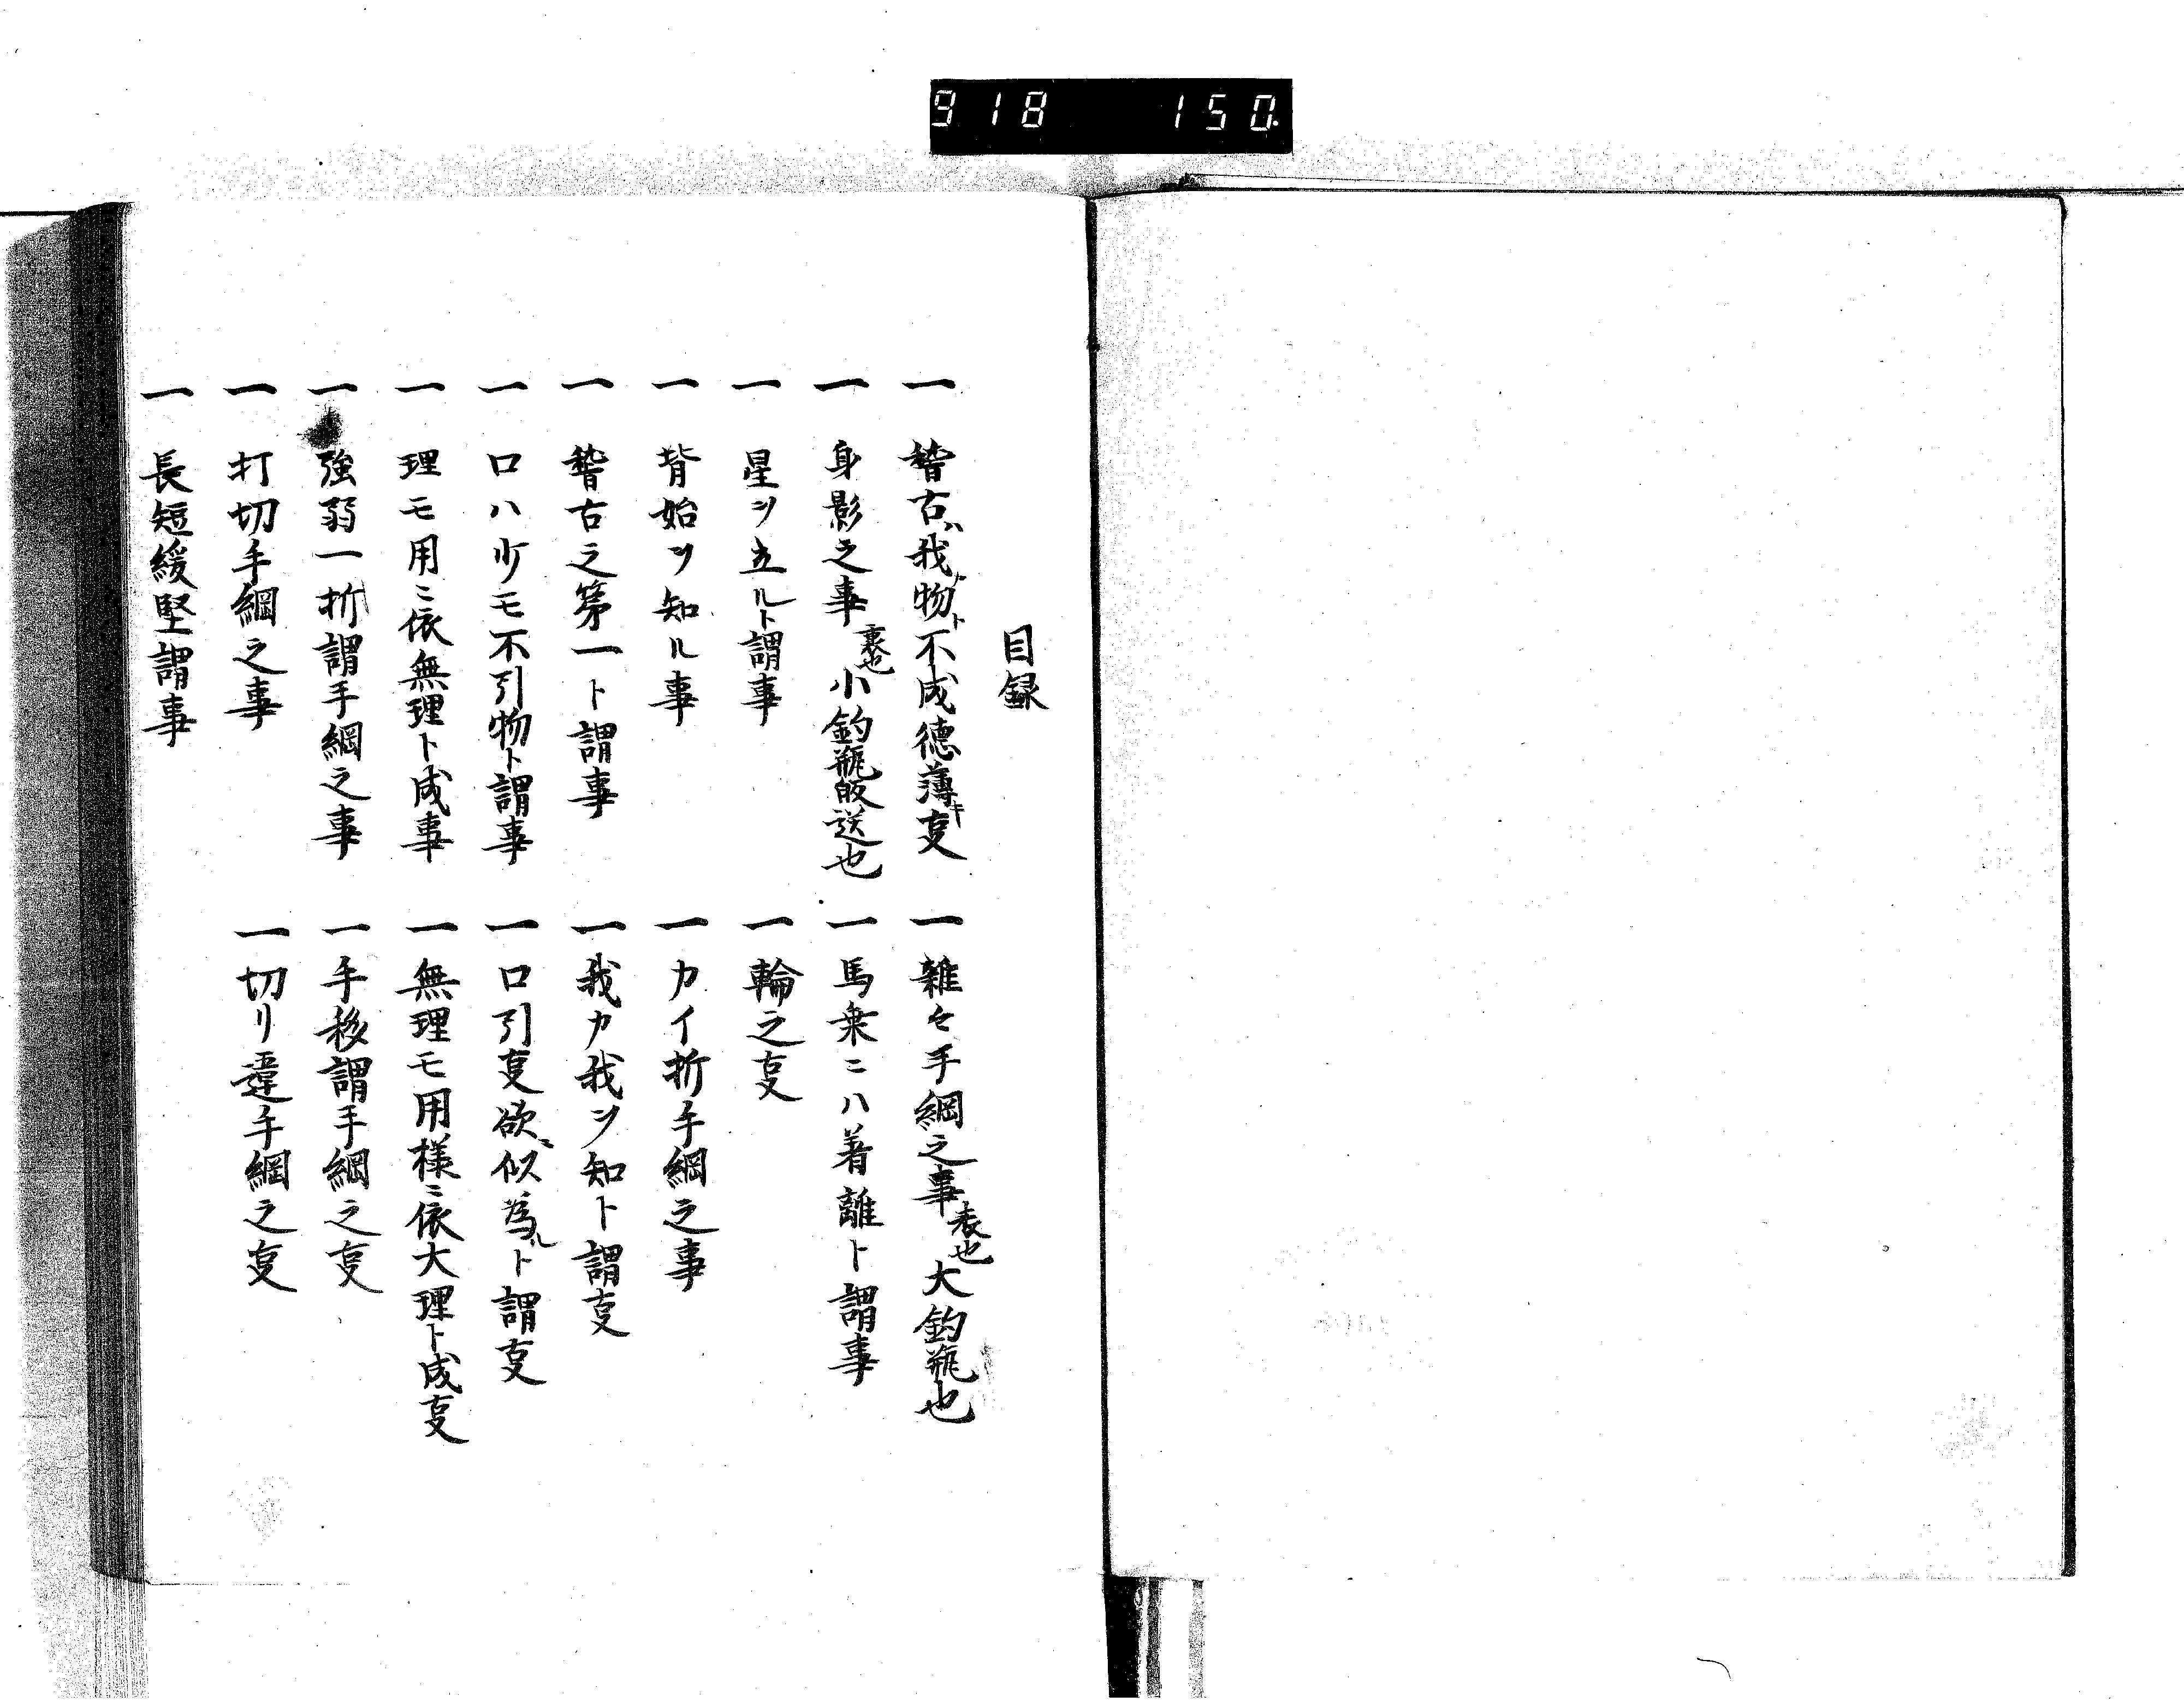 918 150
目録
一 稽古ハ我物ト不成徳薄キ叓
一 雑々手綱之事 表也 大釣瓶也
一 身影之事 裏也 小釣瓶皈送也
一 馬乗ニハ着離ト謂事
一 星ヲ立ルト謂事
一 輪之叓
一 背始ヲ知ル事
一 カイ折手綱之事
一 稽古之第一ト謂事
一 我カ我ヲ知ト謂叓
一 口ハ少モ不引物ト謂事
一 口引叓欲ニ似為ルト謂叓
一 理モ用ニ依無理ト成事
一 無理モ用様ニ依大理ト成叓
一 強弱一折謂手綱之事
一 手移謂手綱之叓
一 打切手綱之事
一 切リ違手綱之叓
一 長短緩堅謂事